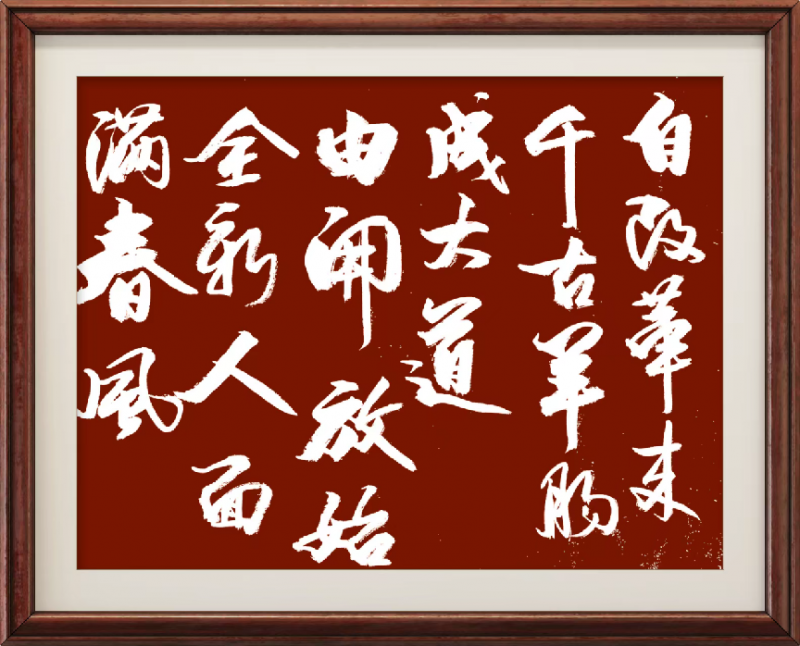 自改革来
千古羊肠
成大道
由开放始
全新人面
满春风